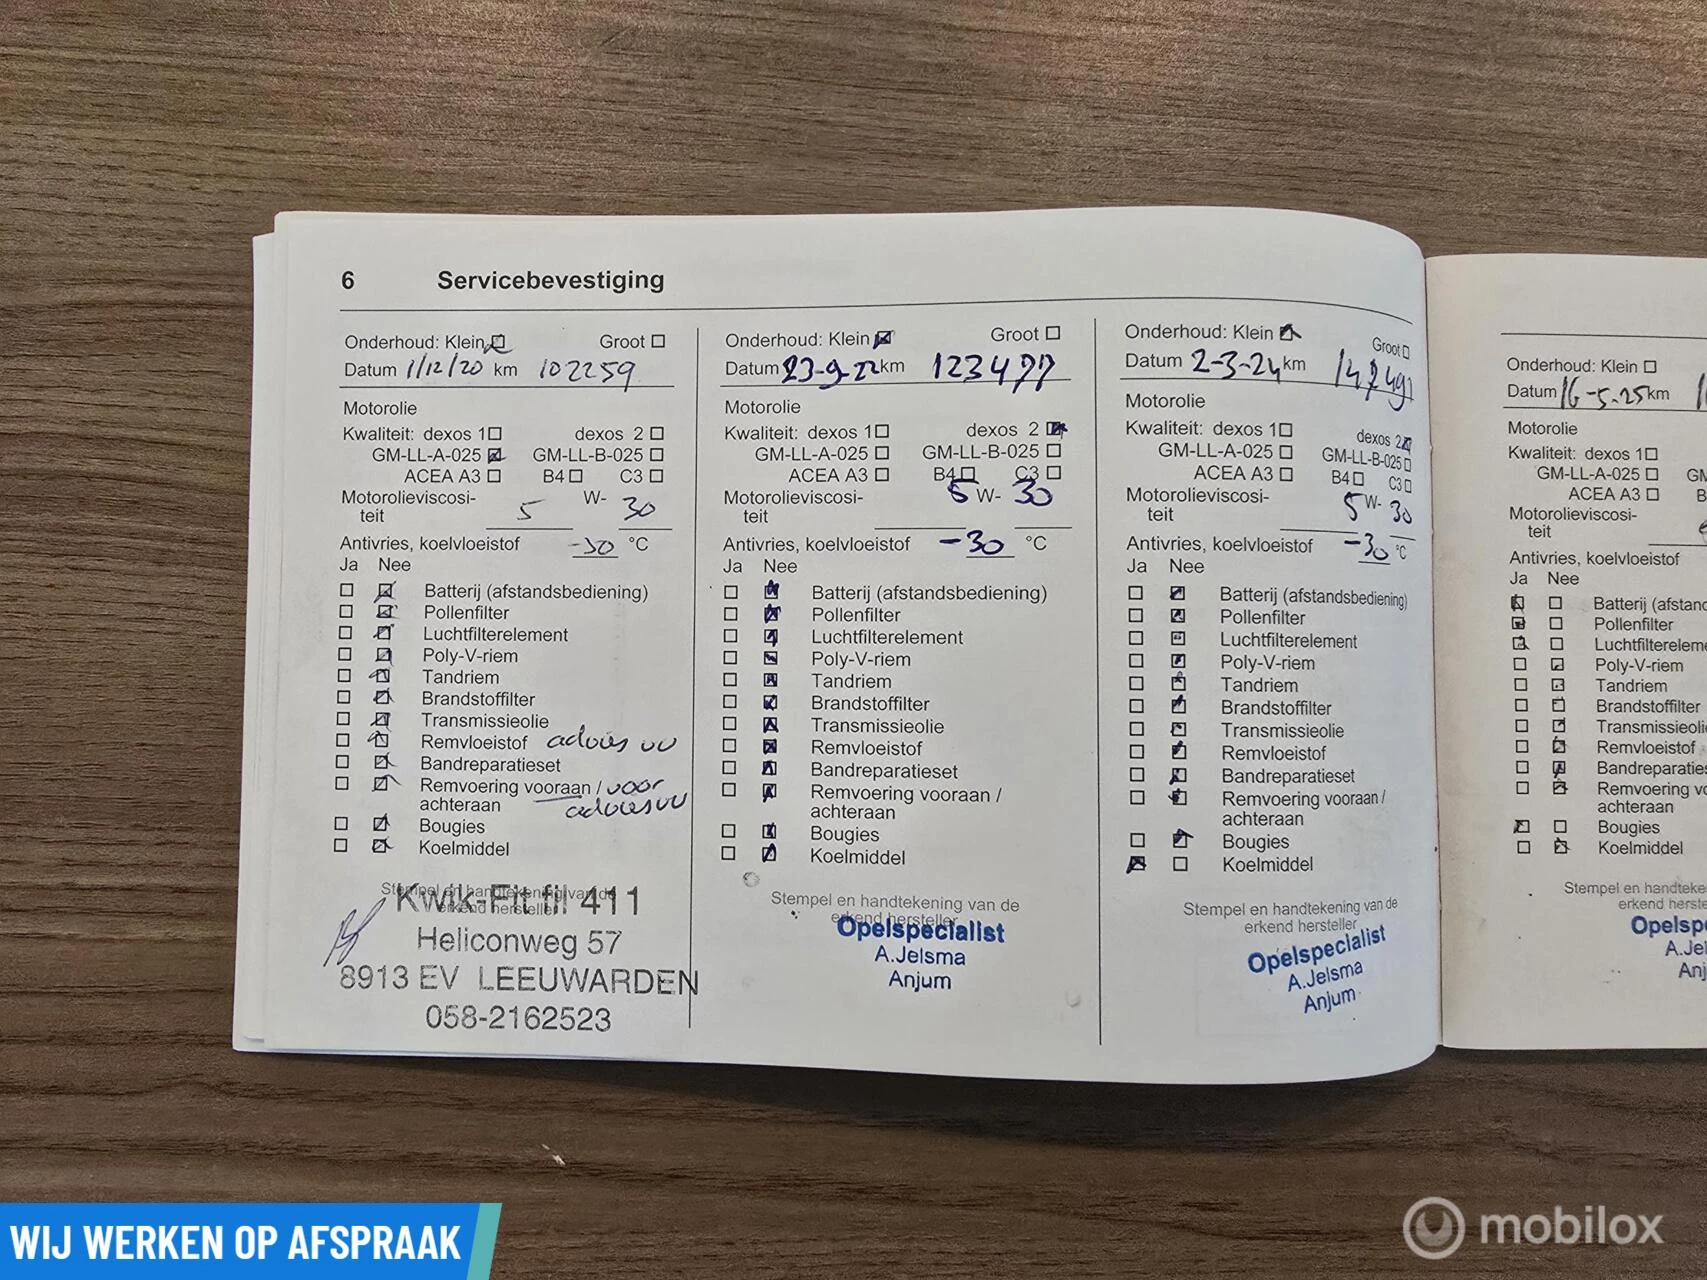 6 Servicebevestiging
Onderhoud: Klein Groot
Datum 1/12/20 km 102259
Motorolie
Kwaliteit: dexos 1 dexos 2
GM-LL-A-025 GM-LL-B-025
ACEA A3 B4 C3
Motorolieviscosi-
teit 5 W- 30
Antivries, koelvloeistof -30 °C
Ja Nee
Batterij (afstandsbediening)
Pollenfilter
Luchtfilterelement
Poly-V-riem
Tandriem
Brandstoffilter
Transmissieolie
Remvloeistof advies vv
Bandreparatieset
Remvoering vooraan / voor
achteraan advies vv
Bougies
Koelmiddel
Stempel en handtekening van de
erkend hersteller
Kwik-Fit fil 411
Heliconweg 57
8913 EV LEEUWARDEN
058-2162523
Onderhoud: Klein Groot
Datum 23-9-22 km 123477
Motorolie
Kwaliteit: dexos 1 dexos 2
GM-LL-A-025 GM-LL-B-025
ACEA A3 B4 C3
Motorolieviscosi-
teit 5 W- 30
Antivries, koelvloeistof -30 °C
Ja Nee
Batterij (afstandsbediening)
Pollenfilter
Luchtfilterelement
Poly-V-riem
Tandriem
Brandstoffilter
Transmissieolie
Remvloeistof
Bandreparatieset
Remvoering vooraan /
achteraan
Bougies
Koelmiddel
Stempel en handtekening van de
erkend hersteller
Opelspecialist
A.Jelsma
Anjum
Onderhoud: Klein Groot
Datum 2-3-24 km
Motorolie
Kwaliteit: dexos 1 dexos 2
GM-LL-A-025 GM-LL-B-025
ACEA A3 B4 C3
Motorolieviscosi-
teit 5 W- 30
Antivries, koelvloeistof -30 °C
Ja Nee
Batterij (afstandsbediening)
Pollenfilter
Luchtfilterelement
Poly-V-riem
Tandriem
Brandstoffilter
Transmissieolie
Remvloeistof
Bandreparatieset
Remvoering vooraan /
achteraan
Bougies
Koelmiddel
Stempel en handtekening van de
erkend hersteller
Opelspecialist
A.Jelsma
Anjum
Onderhoud: Klein
Datum 16-5-25 km
Motorolie
Kwaliteit: dexos 1
GM-LL-A-025 GM
ACEA A3 B
Motorolieviscosi-
teit
Antivries, koelvloeistof
Ja Nee
Batterij (afstand
Pollenfilter
Luchtfilterelem
Poly-V-riem
Tandriem
Brandstoffilter
Transmissieoli
Remvloeistof
Bandreparaties
Remvoering vo
achteraan
Bougies
Koelmiddel
Stempel en handteke
erkend herste
Opelsp
A.Jel
Anj
WIJ WERKEN OP AFSPRAAK
mobilox